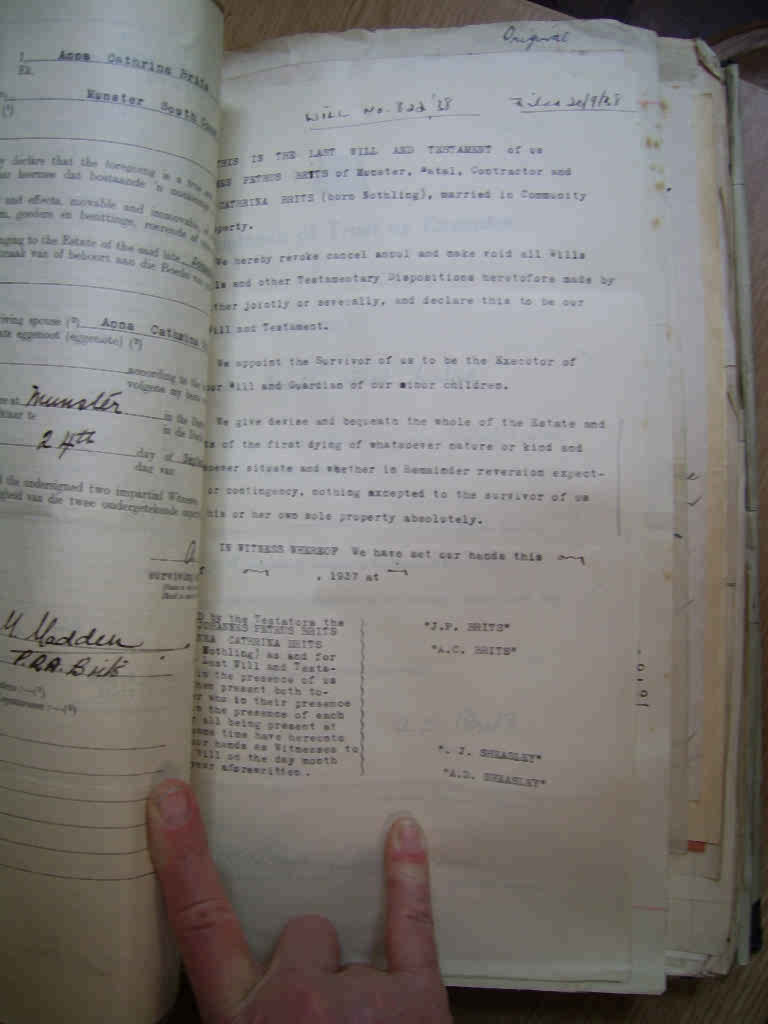 I, Anna Cathrina Brits
Ek,
Munster South
(¹)
declare that the foregoing is a true
hiermee dat bostaande 'n
and effects, movable and immovable,
goedere en besittings, roerende
to the Estate of the said late
of behoort aan die Boedel
spouse (²) Anna Cathrina
eggenoot (eggenote) (²)
according to the
volgens my
at Munster in the
te in die
24th day of
dag van
the undersigned two impartial Witnesses
van die twee ondergetekende
surviving
M Madden
P.R.A. Brits
Original
Will No. 822/38 Filed 20/9/38
THIS IS THE LAST WILL AND TESTAMENT of us
PETRUS BRITS of Munster, Natal, Contractor and
CATHRINA BRITS (born Nothling), married in Community
perty.
We hereby revoke cancel annul and make void all Wills
ls and other Testamentary Dispositions heretofore made by
ther jointly or severally, and declare this to be our
ill and Testament.
We appoint the Survivor of us to be the Executor of
our Will and Guardian of our minor children.
We give devise and bequeath the whole of the Estate and
ts of the first dying of whatsoever nature or kind and
soever situate and whether in Remainder reversion expect-
or contingency, nothing excepted to the survivor of us
his or her own sole property absolutely.
IN WITNESS WHEREOF We have set our hands this
, 1937 at
D by the Testators the
JOHANNES PETRUS BRITS
NNA CATHRINA BRITS
Nothling) as and for
Last Will and Testa-
in the presence of us
then present both to-
r who in their presence
n the presence of each
all being present at
same time have hereunto
our hands as Witnesses to
Will on the day month
year aforewritten.
"J.P. BRITS"
"A.C. BRITS"
J. SHEASLEY"
"A.D. SHEASLEY"